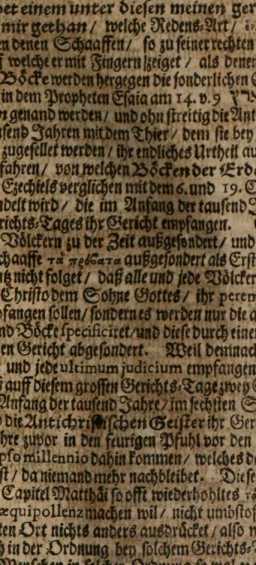 einem unter diesen meinen ger
mir gethan / welche Redens-Art /
en denen Schaaffen / so zu seiner rechten
welche er mit Fingern zeiget / als denen
Böcke werden hergegen die sonderlichen
in dem Propheten Esaia am 14. v. 9
genand werden / und ohnstreitig die Ant
usend Jahren mit dem Thier / dem sie bey
zugesellet werden / ihr endliches Urtheil au
fahren / von welchen Böcken der Erde
Ezechiels verglichen mit dem 6. und 19. C
ndelt wird / die im Anfang der tausend J
richts-Tages ihr Gericht empfangen.
Völckern zu der Zeit außgesondert / und
chaaffe τὰ πρόβατα außgesondert als Erst
nicht folget / daß alle und jede Völcker
Christo dem Sohne Gottes / ihr perem
fangen sollen / sondern es werden nur die
nd Böcke specificiret / und diese durch eine
en Gericht abgesondert. Weil demnach
und jede ultimum judicium empfangen
auff diesem grossen Gerichts-Tage zwey
Anfang der tausend Jahre / im sechsten
die Antichristischen Geister ihr Ger
hre zuvor in den feurigen Pfuhl vor den
pso millennio dahin kommen / welches d
st / da niemand mehr nachbleibet. Diese
Capitel Matthäi so offt wiederhohltes
æquipollenz machen wil / nicht umbstoß
ten Ort nichts anders ausdrücket / also
in der Ordnung bey solchem Gerichts-